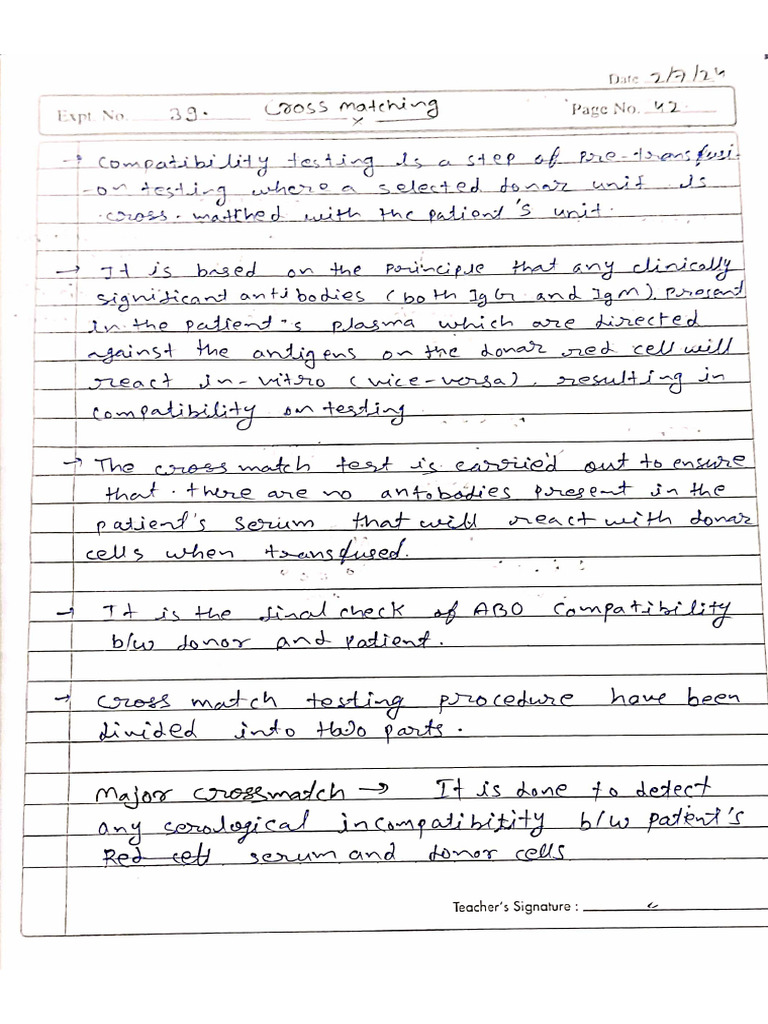 Date 2/7/24
Expt. No. 39. Cross matching Page No. 42
→ Compatibility testing is a step of pre-transfusi-
-on testing where a selected donar unit is
cross-matched with the patient's unit.
→ It is based on the principle that any clinically
significant antibodies (both IgG and IgM) present
in the patient's plasma which are directed
against the antigens on the donar red cell will
react in-vitro (vice-versa), resulting in
compatibility on testing
→ The cross match test is carried out to ensure
that there are no antobodies present in the
patient's serum that will react with donar
cells when transfused.
→ It is the final check of ABO compatibility
b/w donor and patient.
→ Cross match testing procedure have been
divided into two parts.
Major crossmatch → It is done to detect
any serological incompatibility b/w patient's
Red cell serum and donor cells
Teacher's Signature :